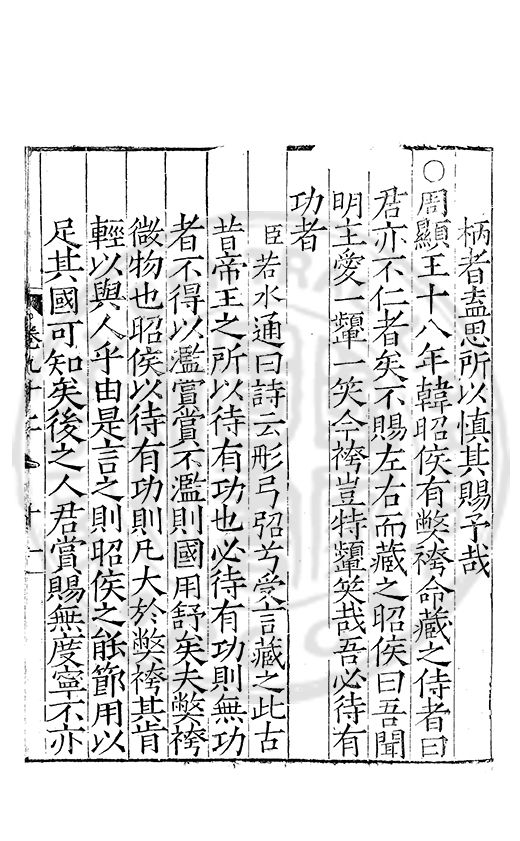 柄者盍思所以慎其賜予哉
○周顯王十八年韓昭侯有弊袴命藏之侍者曰
君亦不仁者矣不賜左右而藏之昭侯曰吾聞
明主愛一顰一笑今袴豈特顰笑哉吾必待有
功者
臣若水通曰詩云彤弓弨兮受言藏之此古
昔帝王之所以待有功也必待有功則無功
者不得以濫賞賞不濫則國用舒矣夫弊袴
微物也昭侯以待有功則凡大於弊袴其肯
輕以與人乎由是言之則昭侯之能節用以
足其國可知矣後之人君賞賜無度寧不亦